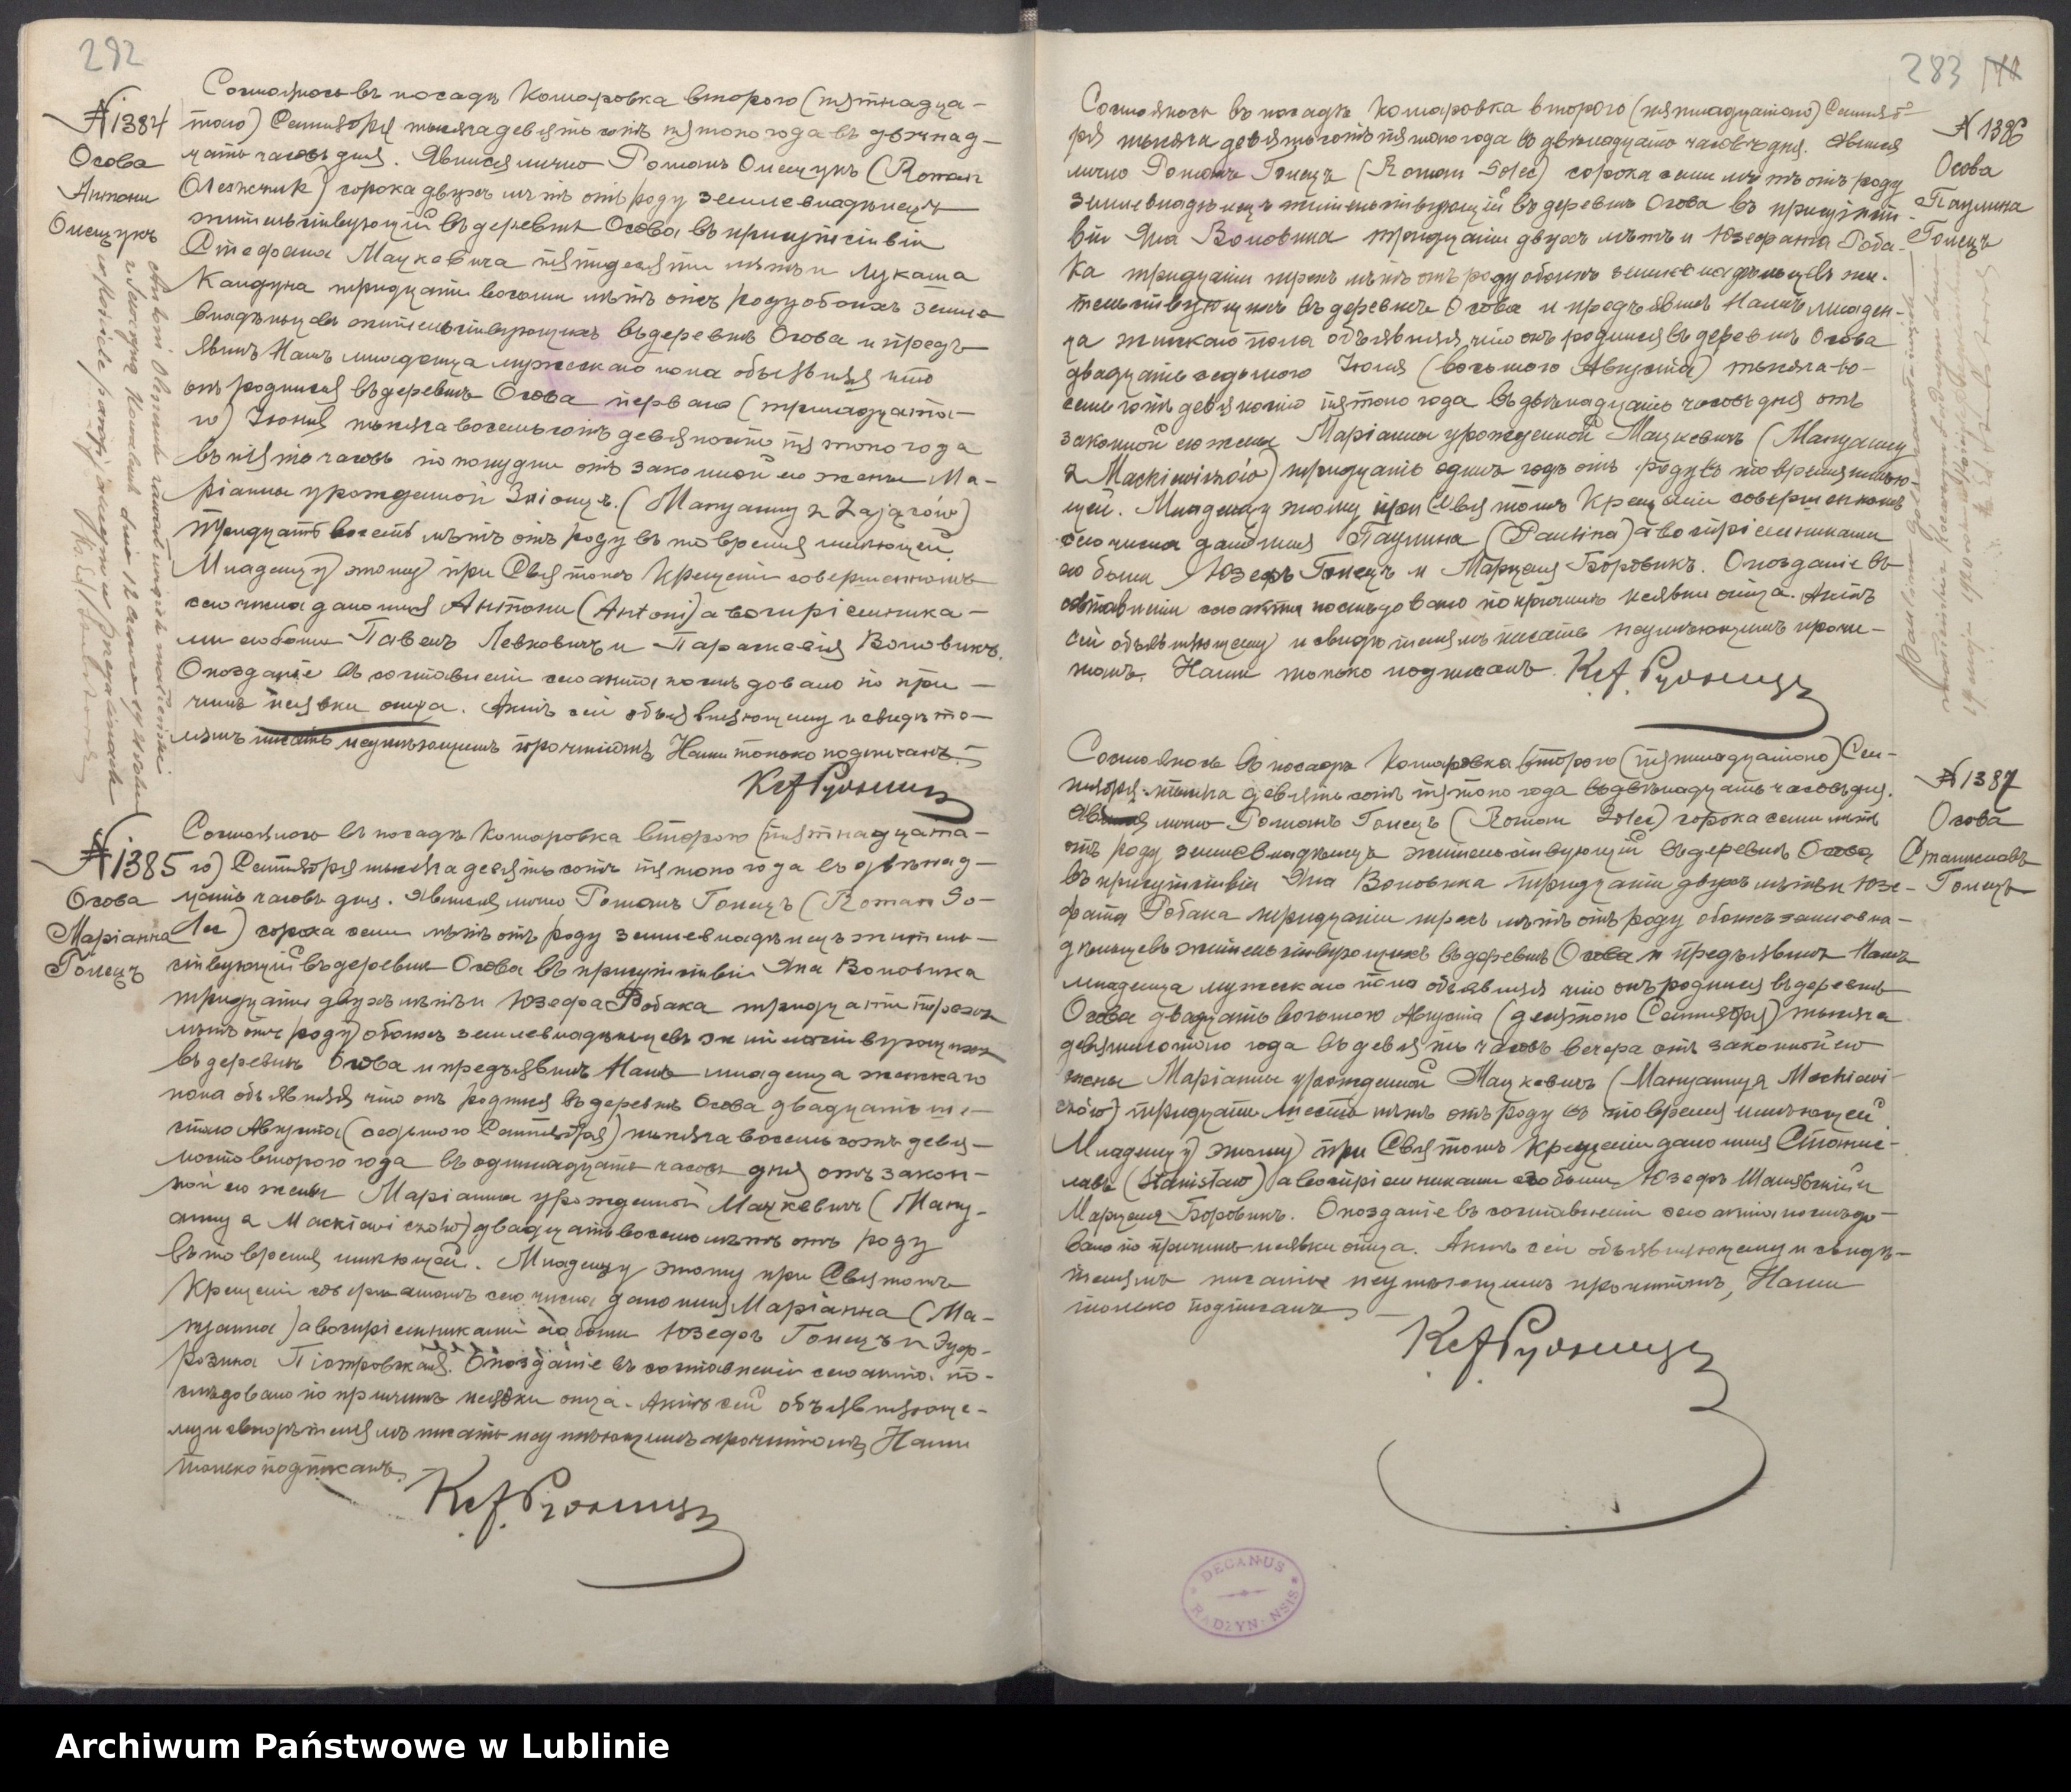 282
№ 1384
Осова
Антони
Олещукъ
Состоялось въ посадѣ Комаровка второго (пятнадца-
таго) Сентября тысяча девятьсотъ пятого года въ двѣнад-
цать часовъ дня. Явился лично Романъ Олещукъ (Roman
Oleszczuk) сорока двухъ лѣтъ отъ роду земледѣлецъ
жительствующій въ деревнѣ Осова въ присутствіи
Стефана Мацкевича пятидесяти лѣтъ и Лукаша
тридцати восьми лѣтъ отъ роду обоихъ земле-
владѣльцевъ жительствующихъ въ деревнѣ Осова и предъ-
явилъ Намъ младенца мужескаго пола объявляя что
онъ родился въ деревнѣ Осова перваго (тринадцата-
го) Іюня тысяча восемьсотъ девяносто пятого года
въ пять часовъ по полудни отъ законной его жены Ма-
ріанны урожденной Заіонцъ (Maryanny z Zająców)
тридцать восемь лѣтъ отъ роду въ то время имѣющей
Младенцу этому при Святомъ Крещеніи совершенномъ
сего числа дано имя Антони (Antoni) а воспріемника-
ми его были Павелъ Левковичъ и Параскевія Воловикъ.
Опозданіе въ составленіи сего акта послѣдовало по при-
чинѣ неявки отца. Актъ сей объявляющему и свидѣте-
лямъ писать неумѣющимъ прочитанъ, Нами только подписанъ.
Antoni Oleszczuk zawarł związek małżeński
z
dnia 12
w kościele parafji
№ 1385
Осова
Маріанна
Голецъ
Состоялось въ посадѣ Комаровка второго (пятнадцата-
го) Сентября тысяча девятьсотъ пятого года въ двѣнад-
цать часовъ дня. Явился лично Романъ Голецъ (Roman Go-
lec) сорока семи лѣтъ отъ роду землевладѣлецъ житель-
ствующій въ деревнѣ Осова въ присутствіи Яна Воловика
тридцати двухъ лѣтъ и Юзефа Робака тридцати трехъ
лѣтъ отъ роду обоихъ землевладѣльцевъ жительствующихъ
въ деревнѣ Осова и предъявилъ Намъ младенца женскаго
пола объявляя что онъ родился въ деревнѣ Осова двадцать ше-
стого Августа (седьмого Сентября) тысяча восемьсотъ девя-
носто второго года въ одиннадцать часовъ дня отъ закон-
ной его жены Маріанны урожденной Мацкевичъ (Mary-
anny z Mackiewiczów) двадцать восемь лѣтъ отъ роду
въ то время имѣющей. Младенцу этому при Святомъ
Крещеніи совершенномъ сего числа дано имя Маріанна (Ma-
ryanna) а воспріемниками его были Юзефъ Голецъ и Эуф-
розина Піотровская. Опозданіе въ составленіи сего акта по-
слѣдовало по причинѣ неявки отца. Актъ сей объявляюще-
му и свидѣтелямъ писать неумѣющимъ прочитанъ, Нами
только подписанъ.
283
№ 1386
Осова
Паулина
Голецъ
Состоялось въ посадѣ Комаровка второго (пятнадцатаго) Сентяб-
ря тысяча девятьсотъ пятого года въ двѣнадцать часовъ дня. Явился
лично Романъ Голецъ (Roman Golec) сорока семи лѣтъ отъ роду
землевладѣлецъ жительствующій въ деревнѣ Осова въ присутст-
віи Яна Воловика тридцати двухъ лѣтъ и Юзефата Роба-
ка тридцати трехъ лѣтъ отъ роду обоихъ землевладѣльцевъ жи-
тельствующихъ въ деревнѣ Осова и предъявилъ Намъ младен-
ца женскаго пола объявляя, что онъ родился въ деревнѣ Осова
двадцать седьмого Іюля (восьмого Августа) тысяча во-
семьсотъ девяносто пятого года въ двѣнадцать часовъ дня отъ
законной его жены Маріанны урожденной Мацкевичъ (Maryanny
z Mackiewiczów) тридцать одинъ годъ отъ роду въ то время имѣю-
щей. Младенцу этому при Святомъ Крещеніи совершенномъ
сего числа дано имя Паулина (Paulina) а воспріемниками
его были Юзефъ Голецъ и Марцеля Боровикъ. Опозданіе въ
составленіи сего акта послѣдовало по причинѣ неявки отца. Актъ
сей объявляющему и свидѣтелямъ писать неумѣющимъ прочи-
танъ. Нами только подписанъ.
Paulina Golec
№ 1387
Осова
Станиславъ
Голецъ
Состоялось въ посадѣ Комаровка второго (пятнадцатого) Сен-
тября тысяча девятьсотъ пятого года въ двѣнадцать часовъ дня.
Явился лично Романъ Голецъ (Roman Golec) сорока семи лѣтъ
отъ роду землевладѣлецъ жительствующій въ деревнѣ Осова
въ присутствіи Яна Воловика тридцати двухъ лѣтъ и Юзе-
фата Робака тридцати трехъ лѣтъ отъ роду обоихъ землевла-
дѣльцевъ жительствующихъ въ деревнѣ Осова и предъявилъ Намъ
младенца мужескаго пола объявляя что онъ родился въ деревнѣ
Осова двадцать восьмого Августа (десятого Сентября) тысяча
девятисотого года въ девять часовъ вечера отъ законной его
жены Маріанны урожденной Мацкевичъ (Maryanny z Mackiewi-
czów) тридцати шести лѣтъ отъ роду въ то время имѣющей.
Младенцу этому при Святомъ Крещеніи дано имя Станис-
лавъ (Stanisław) а воспріемниками его были Юзефъ и
Марцеля Боровикъ. Опозданіе въ составленіи сего акта послѣдо-
вало по причинѣ неявки отца. Актъ сей объявляющему и свидѣ-
телямъ писать неумѣющимъ прочитанъ, Нами
только подписанъ.
DECANUS RADZYNENSIS
Archiwum Państwowe w Lublinie